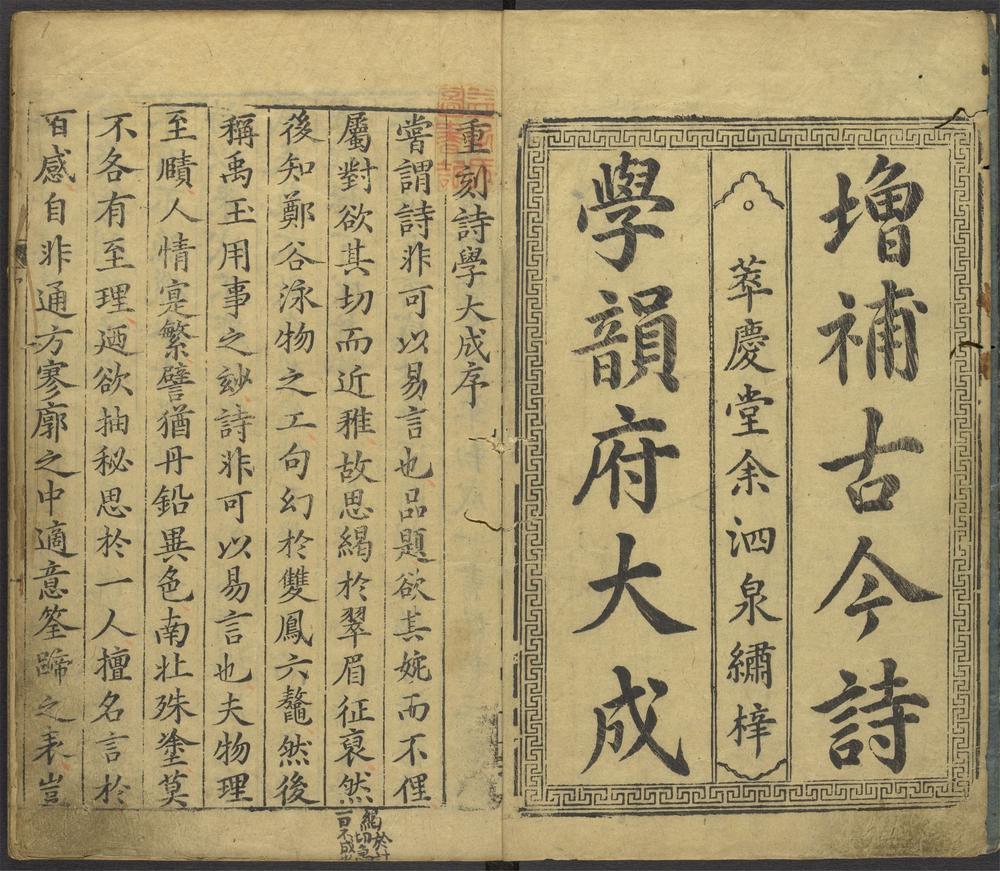 增補古今詩
萃慶堂余泗泉繡梓
學韻府大成
重刻詩學大成序
嘗謂詩非可以易言也品題欲其婉而不俚
屬對欲其切而近雅故思緆於翠眉征裒然
後知鄭谷泳物之工句幻於雙鳳六鼇然後
稱禹玉用事之玅詩非可以易言也夫物理
至賾人情寔繁譬猶丹鉛異色南北殊塗莫
不各有至理廼欲抽秘思於一人擅名言於
百感自非通方寥廓之中適意筌蹄之表豈